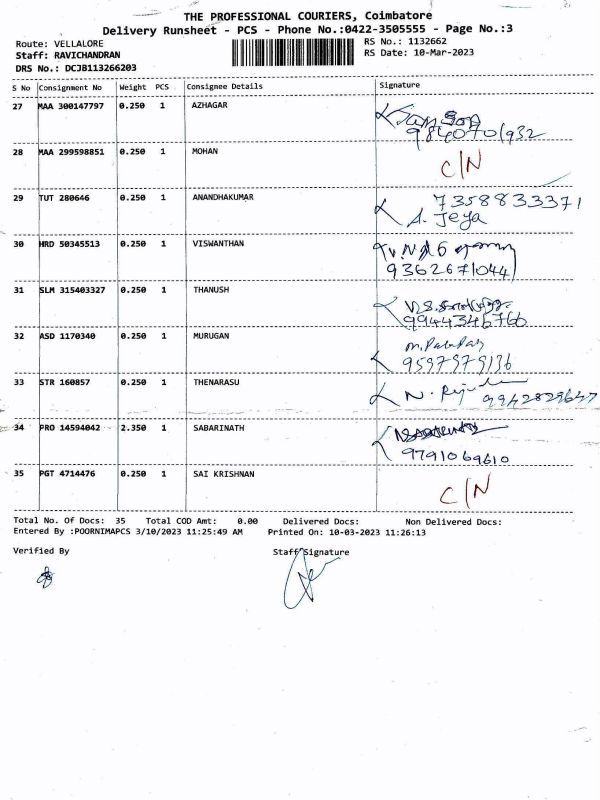 THE PROFESSIONAL COURIERS, Coimbatore
Delivery Runsheet - PCS - Phone No.:0422-3505555 - Page No.:3
Route: VELLALORE
Staff: RAVICHANDRAN
DRS No.: DCJB113266203
RS No.: 1132662
RS Date: 10-Mar-2023
S No Consignment No Weight PCS Consignee Details Signature
27 MAA 300147797 0.250 1 AZHAGAR
9840701932
28 MAA 299598851 0.250 1 MOHAN C/N
29 TUT 280646 0.250 1 ANANDHAKUMAR 7358833371
A. Jeya
30 HRD 50345513 0.250 1 VISWANTHAN
9362671044
31 SLM 315403327 0.250 1 THANUSH
9944346766
32 ASD 1170340 0.250 1 MURUGAN
9597979136
33 STR 160857 0.250 1 THENARASU N. 9942829647
34 PRO 14594042 2.350 1 SABARINATH
9791069610
35 PGT 4714476 0.250 1 SAI KRISHNAN C/N
Total No. Of Docs: 35 Total COD Amt: 0.00 Delivered Docs: Non Delivered Docs:
Entered By :POORNIMAPCS 3/10/2023 11:25:49 AM Printed On: 10-03-2023 11:26:13
Verified By Staff Signature